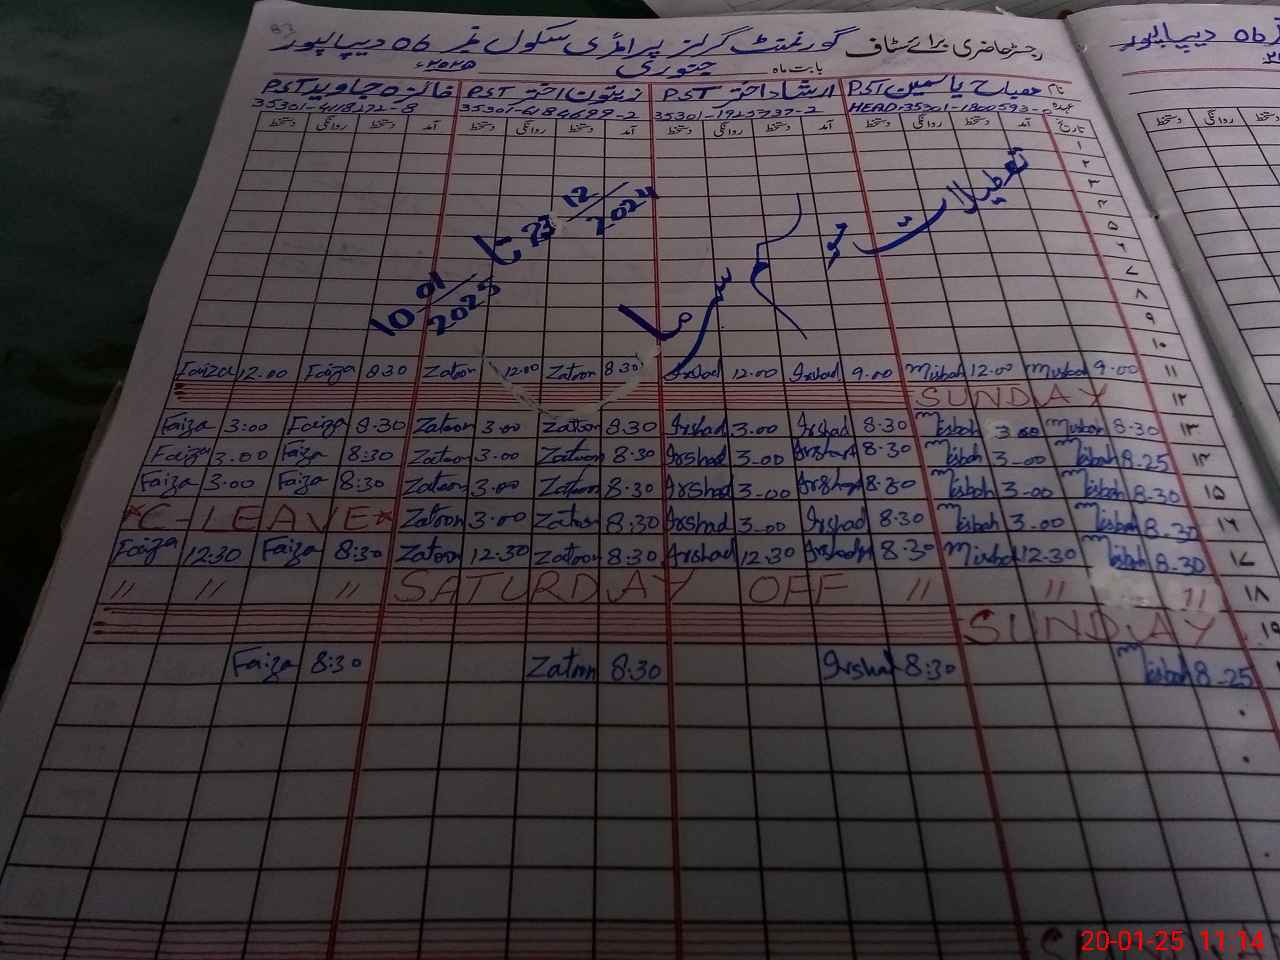 رجسٹر حاضری برائے سٹاف گورنمنٹ گرلز پرائمری سکول نمبر 06 دیپالپور
بابت ماہ جنوری ۲۰۲۵ء
نام مصباح یاسمین PST ارشاد اختر PST زیتون اختر PST فائزہ جاوید PST
عہدہ HEAD. 35301-1923737-2
تاریخ آمد دستخط روانگی دستخط آمد دستخط روانگی دستخط آمد دستخط روانگی دستخط آمد دستخط روانگی دستخط
۱
۲
۳
۴
۵
۶
۷
۸
۹
۱۰
تعطیلات موسم سرما
23 12/2024 تا 10 01/2025
Faiza 12.00 Faiza 8.30 Zatoon 12.00 Zatoon 8.30 Irshad 12.00 Irshad 9.00 Misbah 12.00 Misbah 9.00 ۱۱
SUNDAY ۱۲
Faiza 3:00 Faiza 8.30 Zatoon 3.00 Zatoon 8.30 Irshad 3.00 Irshad 8.30 Misbah 3.00 Misbah 8.30 ۱۳
Faiza 3.00 Faiza 8:30 Zatoon 3.00 Zatoon 8.30 Irshad 3-00 Irshad 8.30 Misbah 3-00 Misbah 8-25 ۱۴
Faiza 3:00 Faiza 8:30 Zatoon 3.00 Zatoon 8.30 Irshad 3-00 Irshad 8.30 Misbah 3-00 Misbah 8-30 ۱۵
*C-LEAVE* Zatoon 3:00 Zatoon 8.30 Irshad 3-00 Irshad 8.30 Misbah 3.00 Misbah 8.30 ۱۶
Faiza 12.30 Faiza 8:30 Zatoon 12.30 Zatoon 8.30 Irshad 12.30 Irshad 8.30 Misbah 12.30 Misbah 8-30 ۱۷
〃 〃 〃 SATURDAY OFF 〃 〃 〃 ۱۸
SUNDAY ۱۹
Faiza 8:30 Zatoon 8.30 Irshad 8:30 Misbah 8-25
20-01-25 11:14